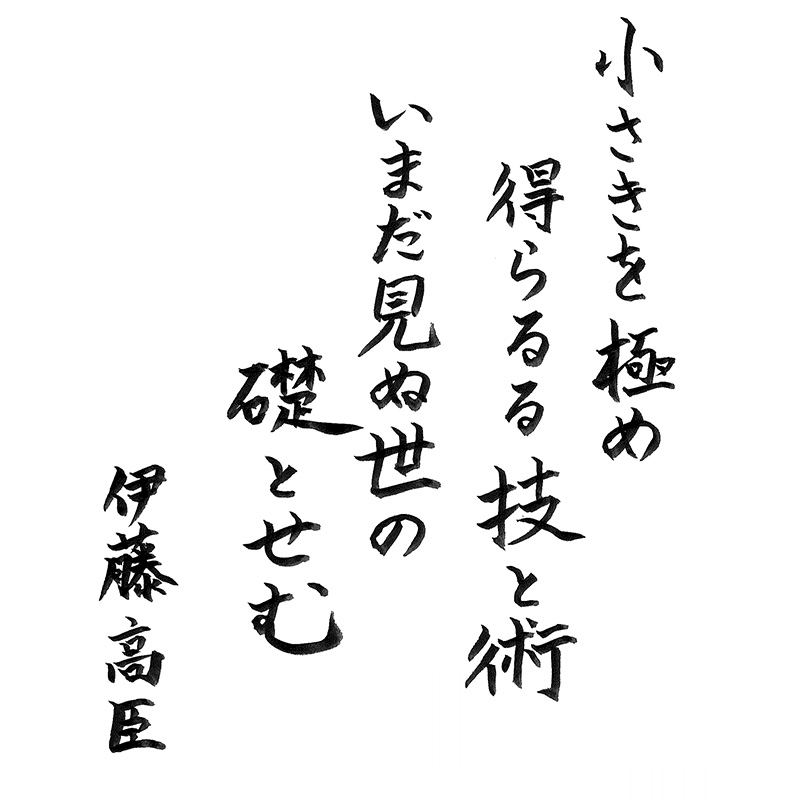 小さきを極め
得らるる技と術
いまだ見ぬ世の
礎とせむ
伊藤高臣